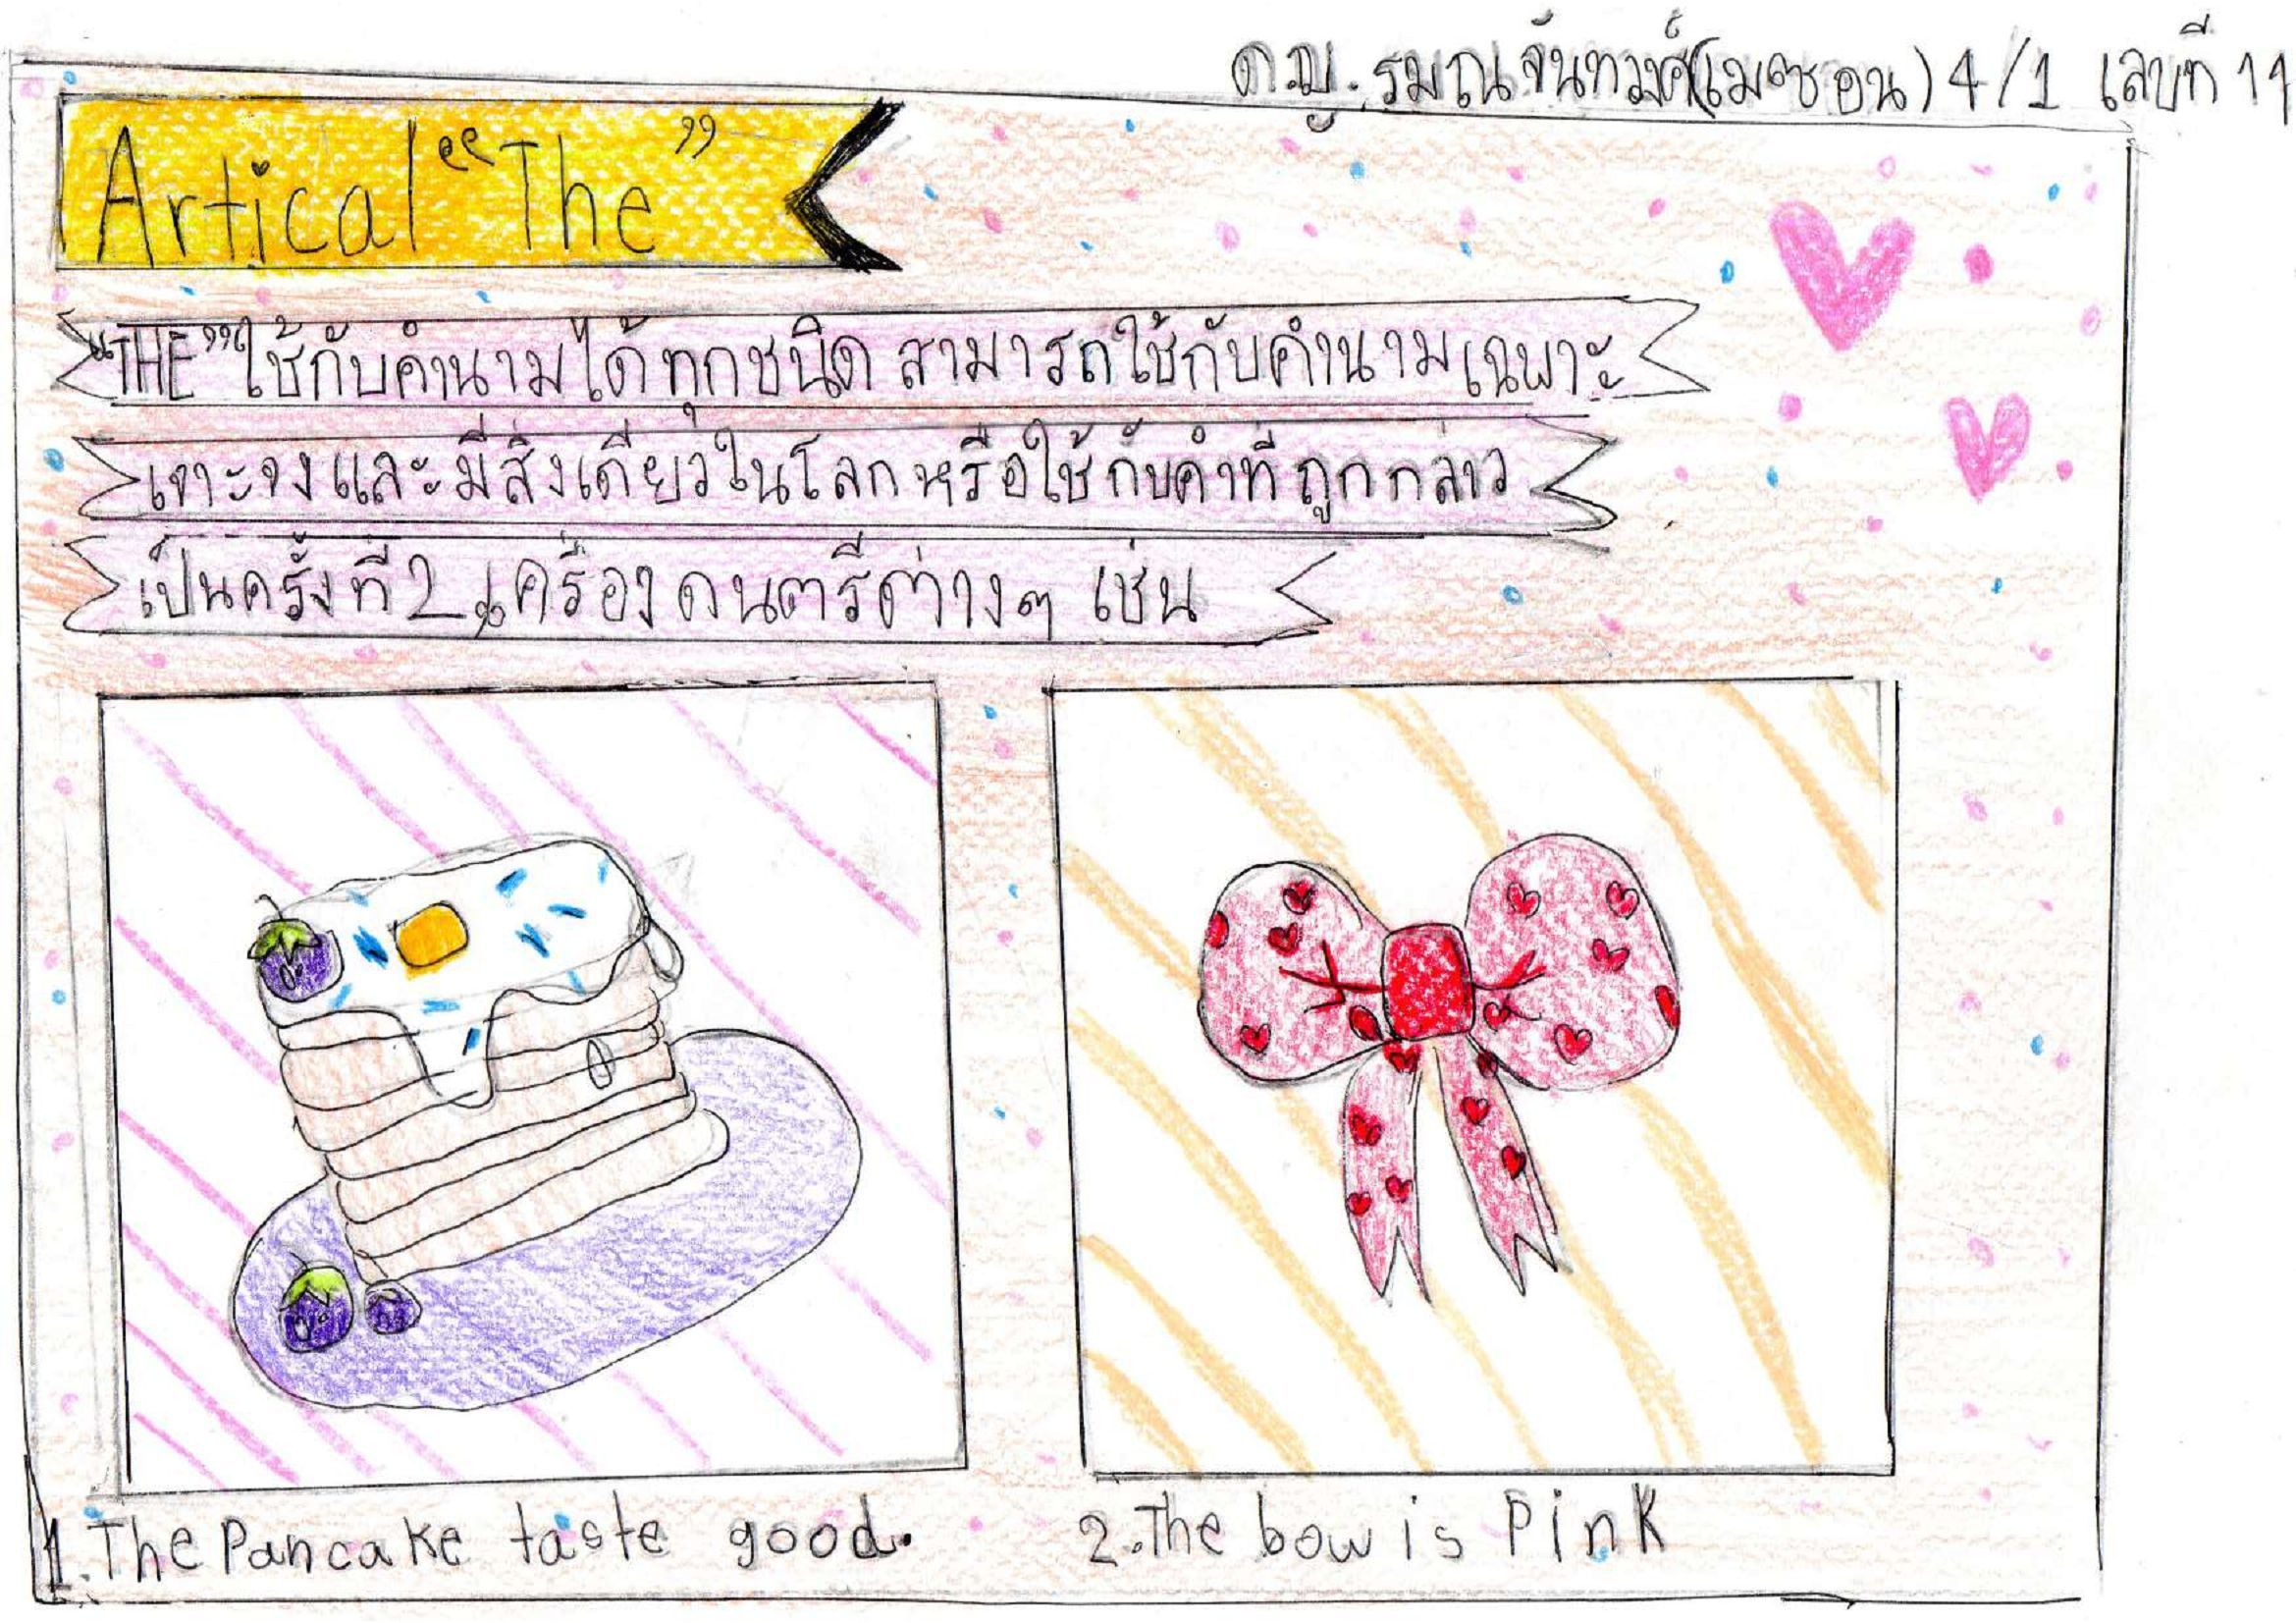 ด.ญ. รมณ จันทวงศ์(เมซอน) 4/1 เลขที่ 11
Artical "The"
"THE" ใช้กับคำนามได้ทุกชนิด สามารถใช้กับคำนามเฉพาะ
เจาะจงและมีสิ่งเดียวในโลกหรือใช้กับคำที่ถูกกล่าว
เป็นครั้งที่2,เครื่องดนตรีต่างๆ เช่น
1.The Pancake taste good.
2.The bow is Pink